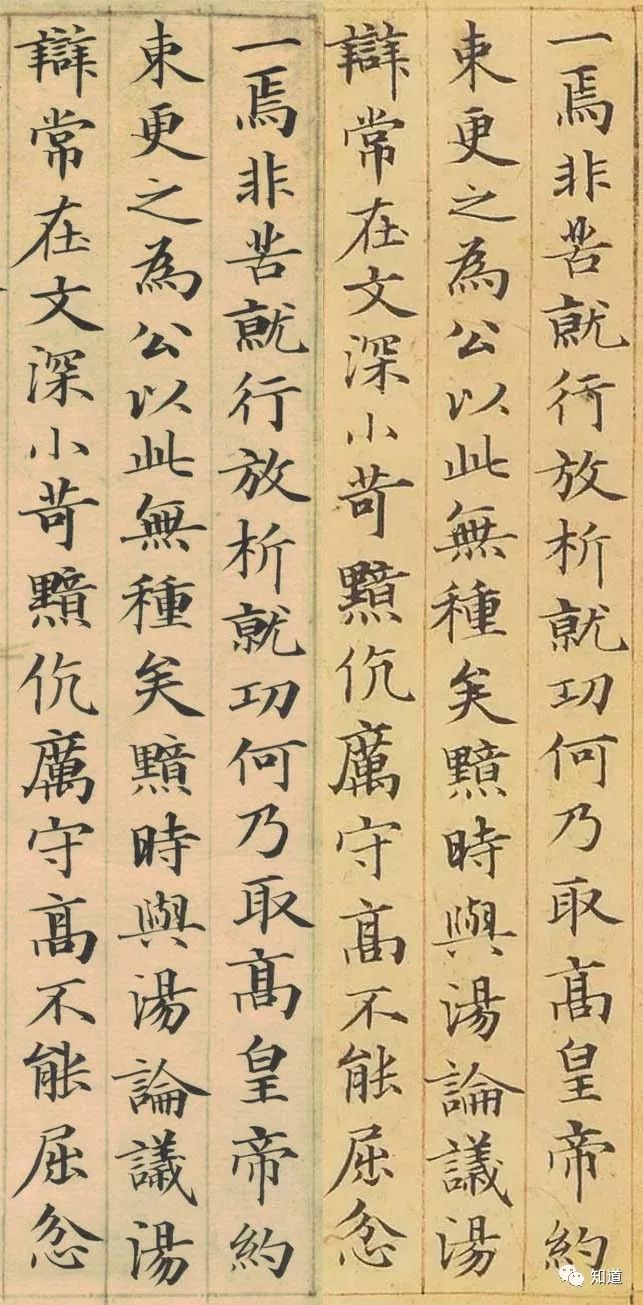 一焉非苦就行放析就功何乃取高皇帝約
束更之為公以此無種矣黯時與湯論議湯
辯常在文深小苛黯伉厲守高不能屈忿
一焉非苦就行放析就功何乃取高皇帝約
束更之為公以此無種矣黯時與湯論議湯
辯常在文深小苛黯伉厲守高不能屈忿
知道